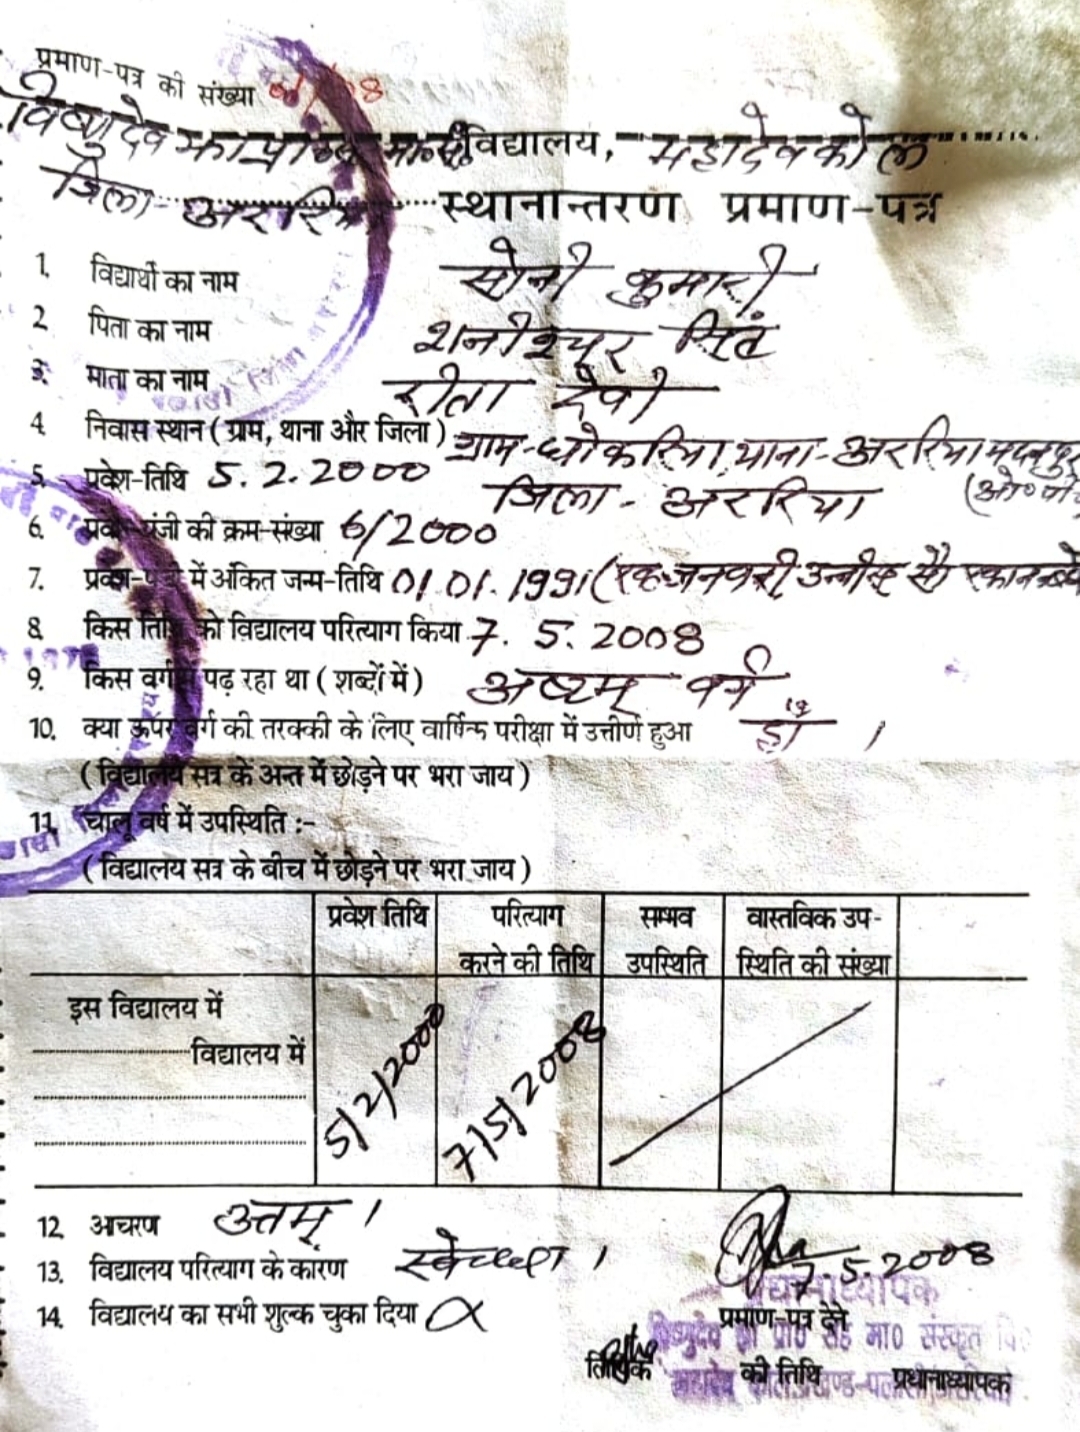 प्रमाण-पत्र की संख्या
विष्णुदेव झा विद्यालय, महादेव कोल
जिला- अररिया स्थानान्तरण प्रमाण-पत्र
1. विद्यार्थी का नाम सोनी कुमारी
2 पिता का नाम शनीश्चर सिंह
3. माता का नाम रीता देवी
4 निवास स्थान ( ग्राम, थाना और जिला ) ग्राम- थाना-अररिया
जिला - अररिया
5. प्रवेश-तिथि 5.2.2000
6. की क्रम-संख्या 6/2000
7. में अंकित जन्म-तिथि 01.01.1991 (एक जनवरी उन्नीस सौ
8. किस तिथि को विद्यालय परित्याग किया 7. 5. 2008
9. किस वर्ग में पढ़ रहा था ( शब्दों में ) अष्टम् वर्ग
10. क्या ऊपर वर्ग की तरक्की के लिए वार्षिक परीक्षा में उत्तीर्ण हुआ हाँ ।
( विद्यालय सत्र के अन्त में छोड़ने पर भरा जाय )
11. चालू वर्ष में उपस्थिति :-
( विद्यालय सत्र के बीच में छोड़ने पर भरा जाय )
प्रवेश तिथि परित्याग सम्भव वास्तविक उप-
करने की तिथि उपस्थिति स्थिति की संख्या
इस विद्यालय में
विद्यालय में
5/2/2000 7/5/2008
12. आचरण उत्तम् ।
13. विद्यालय परित्याग के कारण स्वेच्छा ।
7.5.2008
14. विद्यालय का सभी शुल्क चुका दिया
प्रधानाध्यापक
प्रमाण-पत्र देने
की तिथि प्रधानाध्यापक